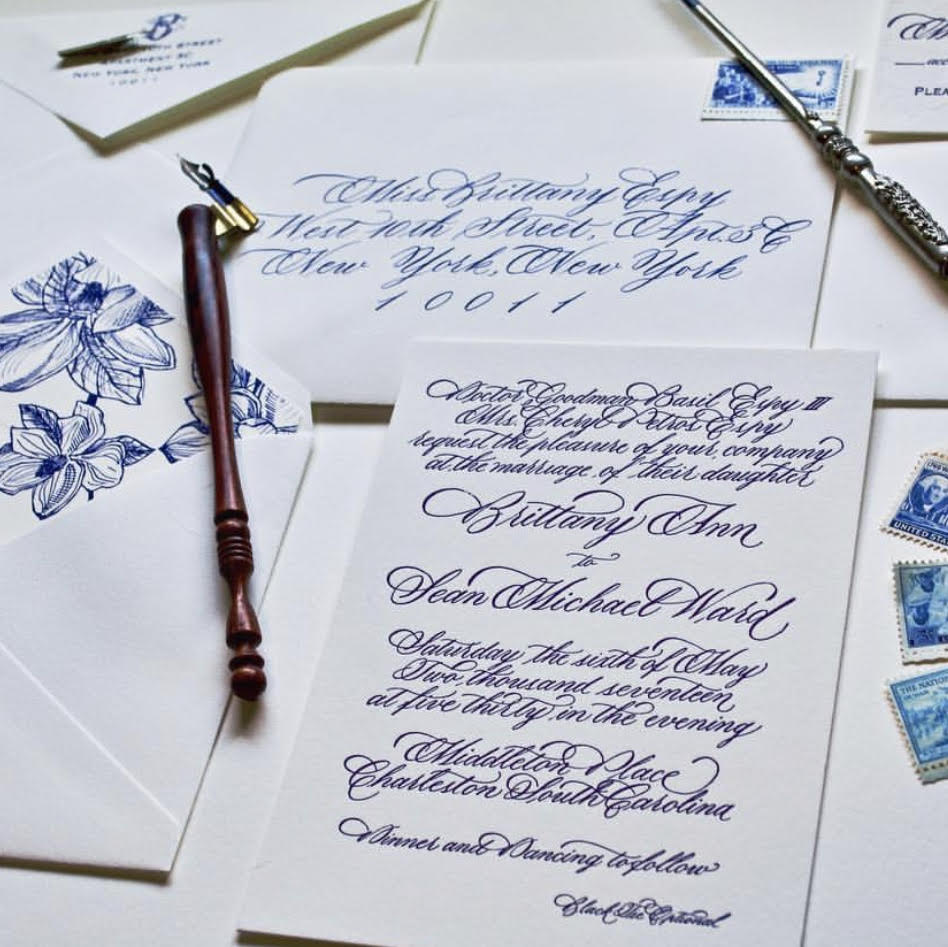 STREET
NEW YORK, NEW YORK
10011
Miss Brittany Espy
West 10th Street, Apt. 3C
New York, New York
10011
PLEA
Doctor Goodman Basil Espy III
Mrs. Cheryl Petros Espy
request the pleasure of your company
at the marriage of their daughter
Brittany Ann
to
Sean Michael Ward
Saturday, the sixth of May
Two thousand seventeen
at five thirty in the evening
Middleton Place
Charleston South Carolina
Dinner and Dancing to follow
Black Tie Optional
UNITED STA
THE NATION